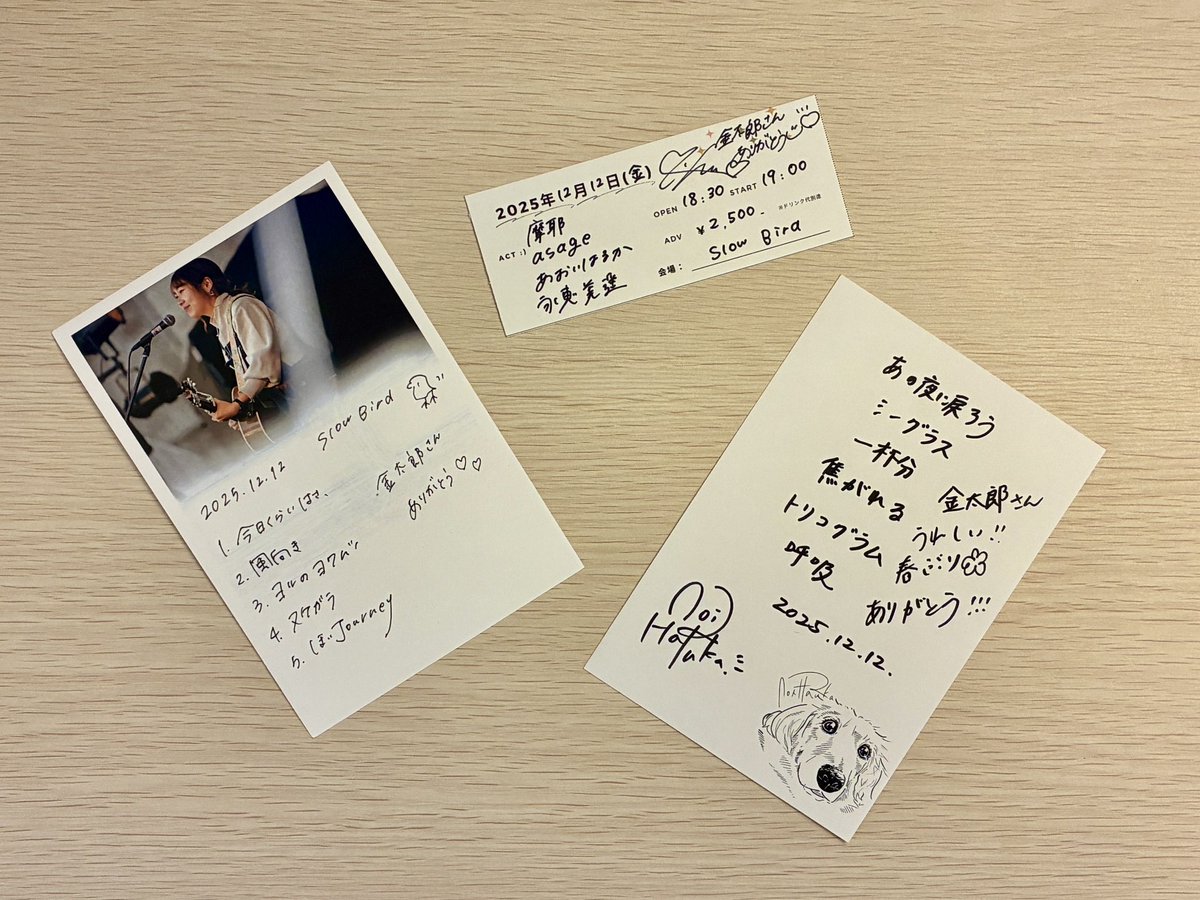 2025.12.12 Slow Bird
金太郎さん
ありがとう♡♡
1. 今日くらいはさ、
2. 風向き
3. ヨルのヨワムシ
4. ヌケガラ
5. Journey
2025年12月12日(金)
金太郎さん
ありがとう
OPEN 18:30 START 19:00
ADV ¥2,500. ※ドリンク代別途
会場: Slow Bird
ACT:)
摩耶
asage
あおいはるか
あの夜に戻ろう
シーグラス
一杯分
焦がれる
トリコグラム
呼吸
金太郎さん
うれしい!!
春ぶり
ありがとう!!!
2025.12.12.
Aoi
Haruka